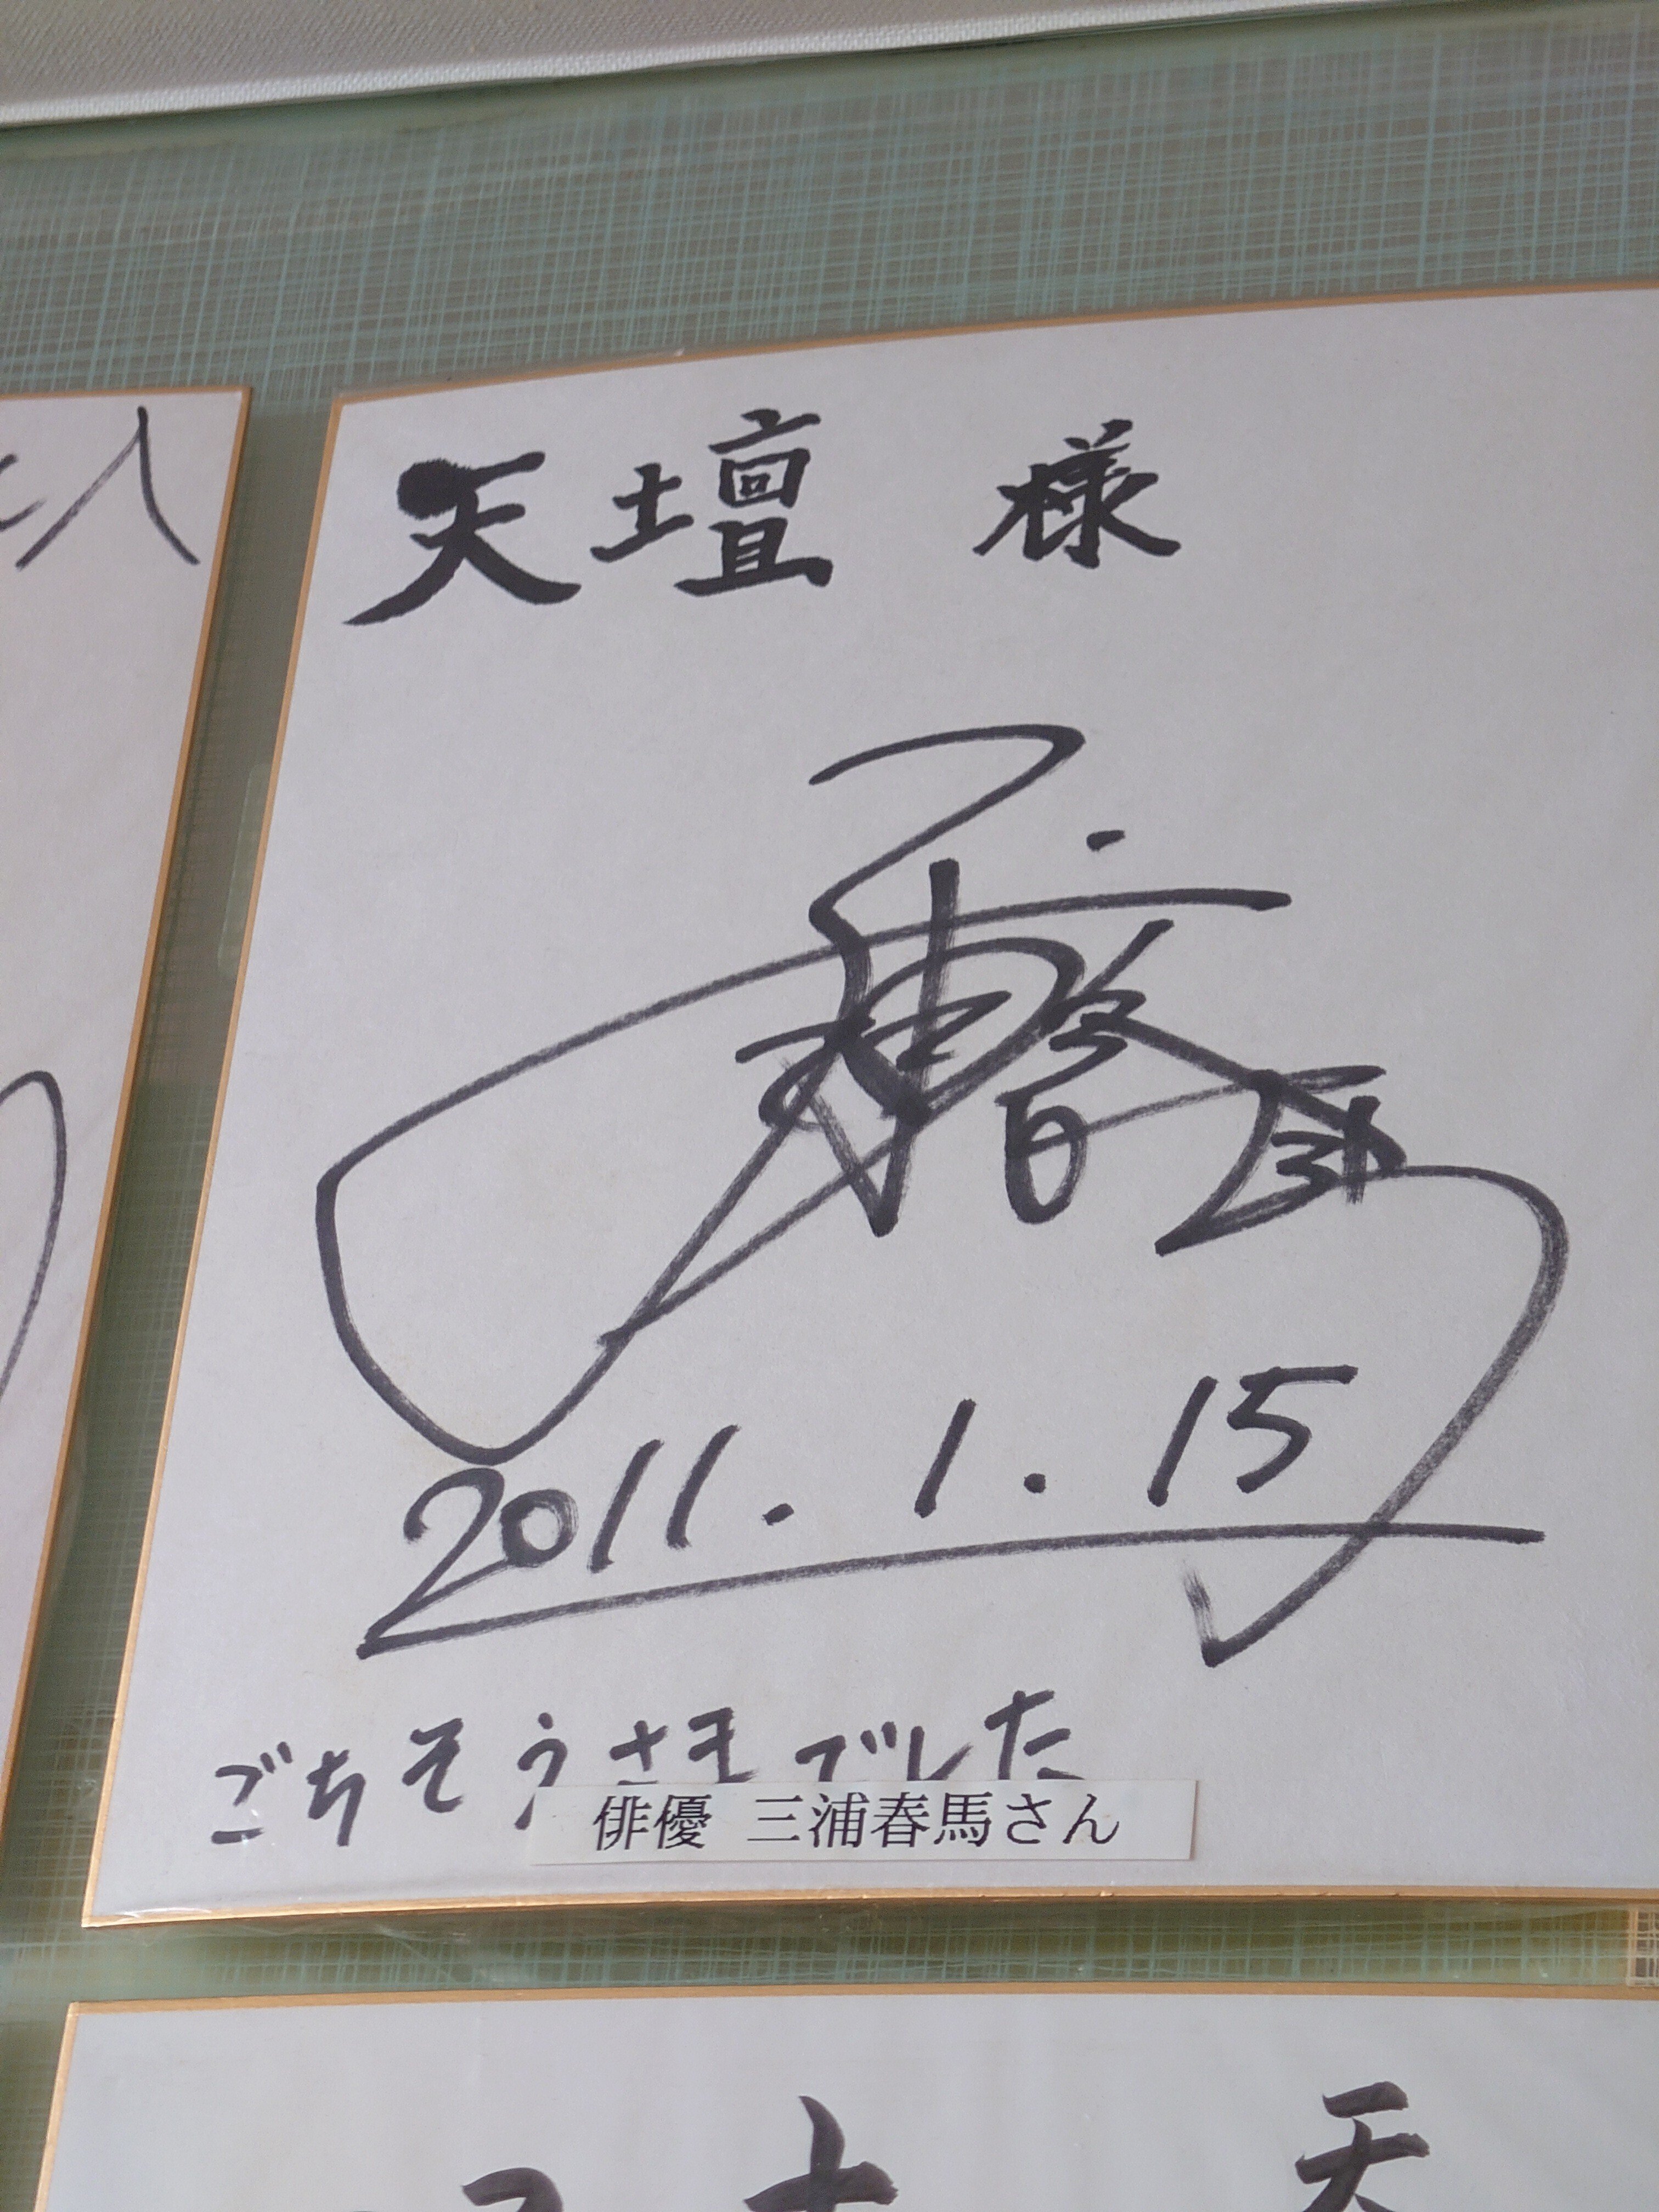 天壇 様
三浦春馬
2011.1.15
ごちそうさまでした
俳優 三浦春馬さん
天